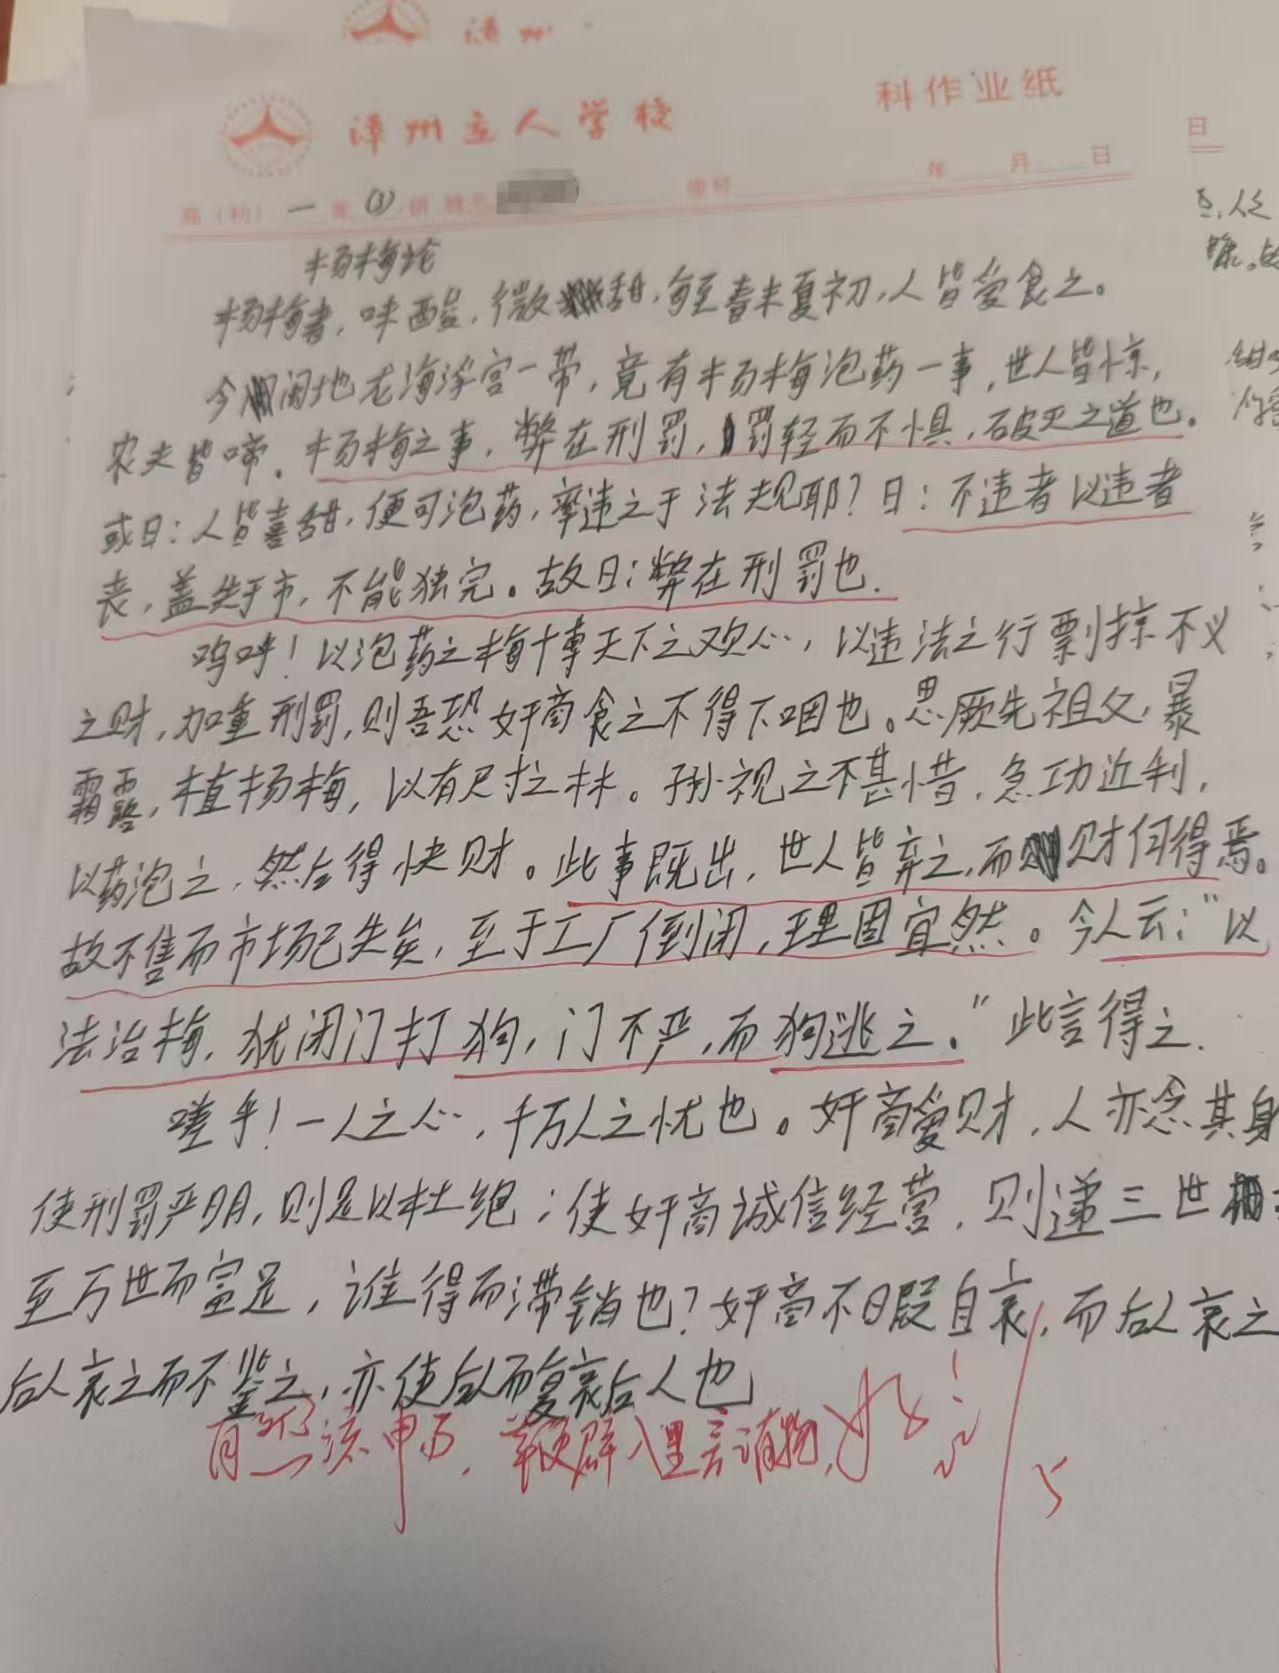 漳州
漳州立人学校
科作业纸
年 月 日
日
届(初)一 年(3)班 姓名 座号
杨梅论
杨梅者,味酸,微甜,每至春末夏初,人皆爱食之。
今闻地龙海浮宫一带,竟有杨梅泡药一事,世人皆惊,
农夫皆啼。杨梅之事,弊在刑罚,罚轻而不惧,破灭之道也。
或曰:人皆喜甜,便可泡药,率违之于法规耶?曰:不违者以违者
丧,盖失于市,不能独完。故曰:弊在刑罚也.
呜呼!以泡药之梅博天下之欢心,以违法之行剽掠不义
之财,加重刑罚,则吾恐奸商食之不得下咽也。思厥先祖父,暴
霜露,植杨梅,以有尺寸之林。子孙视之不甚惜,急功近利,
以药泡之,然后得快财。此事既出,世人皆弃之,而财何得焉。
故不售而市场已失矣,至于工厂倒闭,理固宜然。今人云:"以
法治梅,犹闭门打狗,门不严,而狗逃之。"此言得之.
嗟乎!一人之心,千万人之忧也。奸商爱财,人亦念其身
使刑罚严明,则足以杜绝;使奸商诚信经营,则递三世
至万世而富足,谁得而滞销也?奸商不暇自哀,而后人哀之
后人哀之而不鉴之,亦使后人而复哀后人也
鞭辟入里言请物,好!